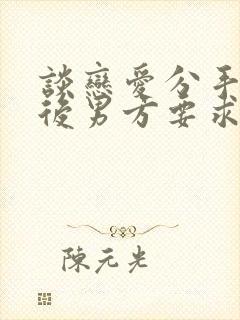 談戀愛分手
後男方要求
陳元光